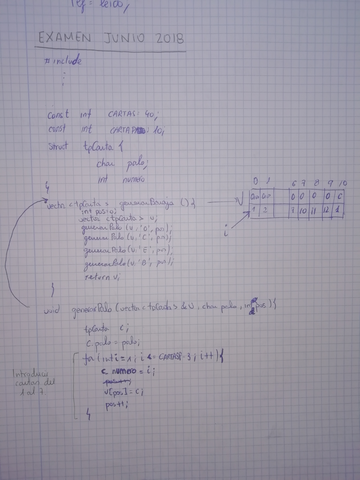 EXAMEN JUNIO 2018
# include
const int CARTAS 40;
const int 10;
struct tpCarta {
char palo;
int numero
}
vector <tpCarta> generarBaraja () {
int pos=0;
vector <tpCarta> v;
generarPalo (v, 'O', pos);
generarPalo (v, 'C', pos);
generarPalo (v, 'E', pos);
generarPalo (v, 'B', pos);
return v;
}
0 1 6 7 8 9 10
v
1 2 1 10 11 12 1
i
void generarPalo (vector <tpCarta> & v, char palo, int pos) {
tpCarta c;
c.palo = palo;
for (int i = 1; i++) {
Introduce
cartas del
1 al 7
c.numero = i;
v[pos] = c;
pos++;
}